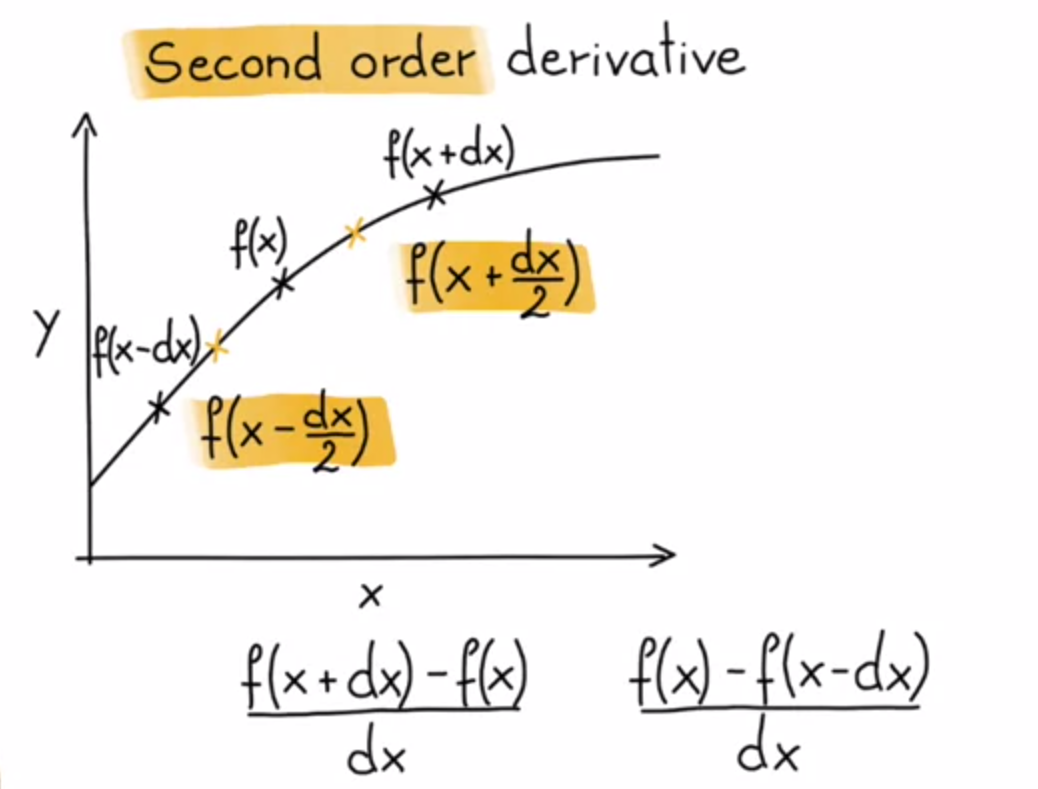 Second order derivative
f(x+dx)
f(x)
f(x + dx/2)
y
f(x-dx)
f(x - dx/2)
x
f(x + dx) - f(x)
dx
f(x) - f(x-dx)
dx